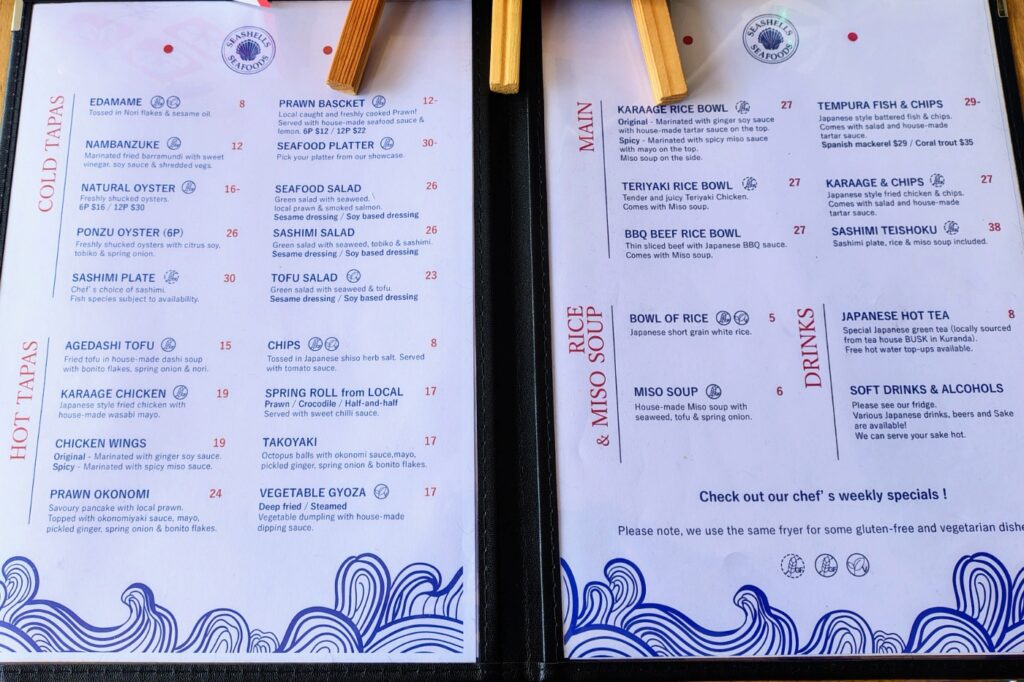 SEASHELLS
SEAFOODS
COLD TAPAS
EDAMAME 8
Tossed in Nori flakes & sesame oil.
NAMBANZUKE 12
Marinated fried barramundi with sweet
vinegar, soy sauce & shredded vegs.
NATURAL OYSTER 16-
Freshly shucked oysters.
6P $16 / 12P $30
PONZU OYSTER (6P) 26
Freshly shucked oysters with citrus soy,
tobiko & spring onion.
SASHIMI PLATE 30
Chef's choice of sashimi.
Fish species subject to availability.
PRAWN BASCKET 12-
Local caught and freshly cooked Prawn!
Served with house-made seafood sauce &
lemon. 6P $12 / 12P $22
SEAFOOD PLATTER 30-
Pick your platter from our showcase.
SEAFOOD SALAD 26
Green salad with seaweed,
local prawn & smoked salmon.
Sesame dressing / Soy based dressing
SASHIMI SALAD 26
Green salad with seaweed, tobiko & sashimi.
Sesame dressing / Soy based dressing
TOFU SALAD 23
Green salad with seaweed & tofu.
Sesame dressing / Soy based dressing
HOT TAPAS
AGEDASHI TOFU 15
Fried tofu in house-made dashi soup
with bonito flakes, spring onion & nori.
KARAAGE CHICKEN 19
Japanese style fried chicken with
house-made wasabi mayo.
CHICKEN WINGS 19
Original - Marinated with ginger soy sauce.
Spicy - Marinated with spicy miso sauce.
PRAWN OKONOMI 24
Savoury pancake with local prawn.
Topped with okonomiyaki sauce, mayo,
pickled ginger, spring onion & bonito flakes.
CHIPS 8
Tossed in Japanese shiso herb salt. Served
with tomato sauce.
SPRING ROLL from LOCAL 17
Prawn / Crocodile / Half-and-half
Served with sweet chilli sauce.
TAKOYAKI 17
Octopus balls with okonomi sauce,mayo,
pickled ginger, spring onion & bonito flakes.
VEGETABLE GYOZA 17
Deep fried / Steamed
Vegetable dumpling with house-made
dipping sauce.
SEASHELLS
SEAFOODS
MAIN
KARAAGE RICE BOWL 27
Original - Marinated with ginger soy sauce
with house-made tartar sauce on the top.
Spicy - Marinated with spicy miso sauce
with mayo on the top.
Miso soup on the side.
TERIYAKI RICE BOWL 27
Tender and juicy Teriyaki Chicken.
Comes with Miso soup.
BBQ BEEF RICE BOWL 27
Thin sliced beef with Japanese BBQ sauce.
Comes with Miso soup.
TEMPURA FISH & CHIPS 29-
Japanese style battered fish & chips.
Comes with salad and house-made
tartar sauce.
Spanish mackerel $29 / Coral trout $35
KARAAGE & CHIPS 27
Japanese style fried chicken & chips.
Comes with salad and house-made
tartar sauce.
SASHIMI TEISHOKU 38
Sashimi plate, rice & miso soup included.
RICE
& MISO SOUP
BOWL OF RICE 5
Japanese short grain white rice.
MISO SOUP 6
House-made Miso soup with
seaweed, tofu & spring onion.
DRINKS
JAPANESE HOT TEA 8
Special Japanese green tea (locally sourced
from tea house BUSK in Kuranda).
Free hot water top-ups available.
SOFT DRINKS & ALCOHOLS
Please see our fridge.
Various Japanese drinks, beers and Sake
are available!
We can serve your sake hot.
Check out our chef's weekly specials !
Please note, we use the same fryer for some gluten-free and vegetarian dishe